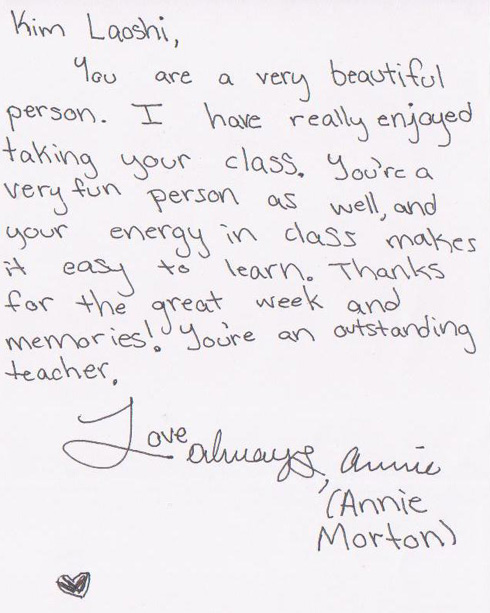 Kim Laoshi,
You are a very beautiful
person. I have really enjoyed
taking your class. You're a
very fun person as well, and
your energy in class makes
it easy to learn. Thanks
for the great week and
memories! You're an outstanding
teacher.
Love always, Annie
(Annie
Morton)